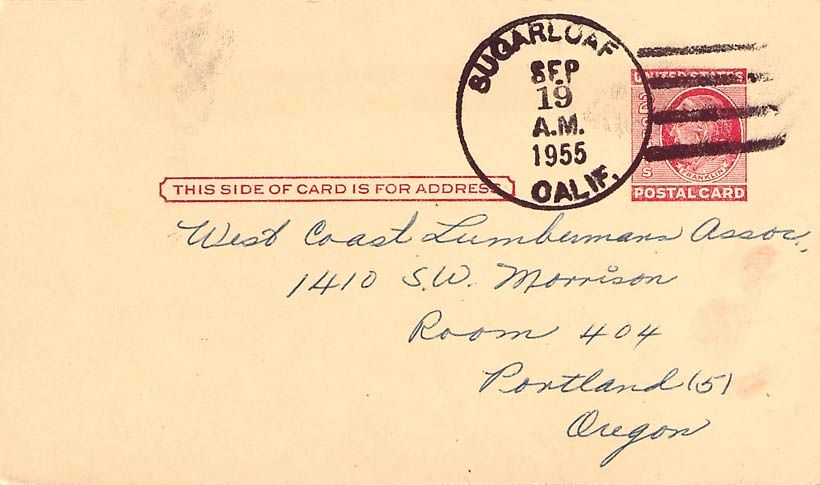 SUGARLOAF
SEP
19
A.M.
1955
CALIF.
UNITED STATES
FRANKLIN
POSTAL CARD
THIS SIDE OF CARD IS FOR ADDRESS
West Coast Lumbermans Assoc.,
1410 S.W. Morrison
Room 404
Portland (5)
Oregon